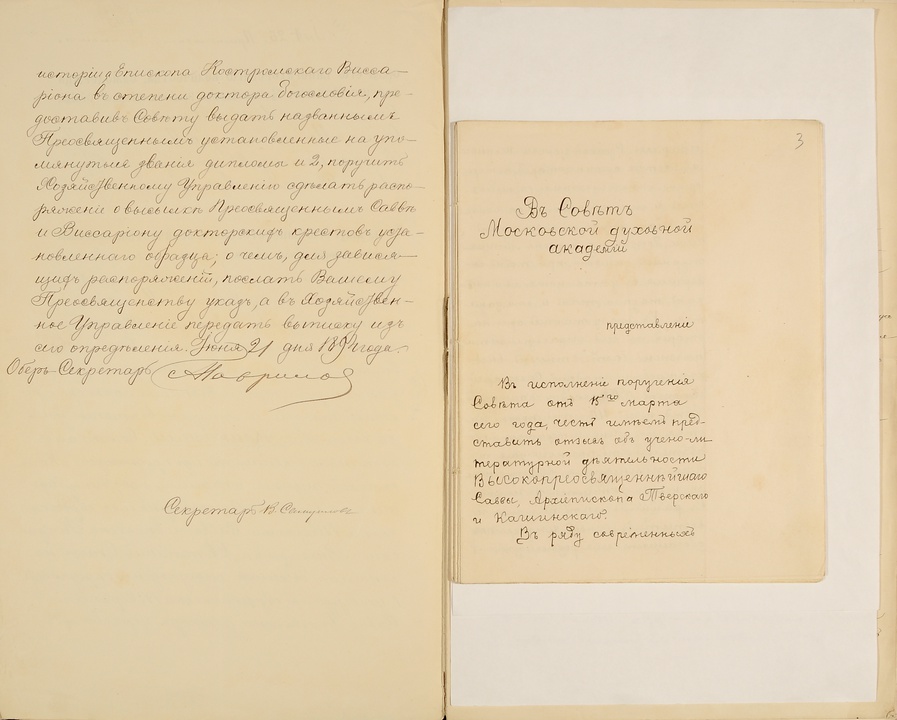 исторіи, а Епископа Костромскаго Висса-
ріона въ степени доктора богословія, пре-
доставивъ Совѣту выдать названнымъ
Преосвященнымъ установленные на упо-
мянутыя званія дипломы и 2, поручить
Хозяйственному Управленію сдѣлать распо-
ряженіе о высылкѣ Преосвященнымъ Саввѣ
и Виссаріону докторскихъ крестовъ уста-
новленнаго образца; о чемъ, для зависи-
щихъ распоряженій, послать Вашему
Преосвященству указъ, а въ Хозяйствен-
ное Управленіе передать выписку изъ
сего опредѣленія. Іюня 21 дня 189 года.
Оберъ-Секретарь Гавриловъ
Секретарь В.
3
Въ Совѣтъ
Московской духовной
академіи
представленіе
Въ исполненіе порученія
Совѣта отъ 15го марта
сего года, честь имѣемъ пред-
ставить отзывъ объ учено-ли-
тературной дѣятельности
Высокопреосвященнѣйшаго
Саввы, Архіепископа Тверскаго
и Кашинскаго.
Въ ряду современныхъ